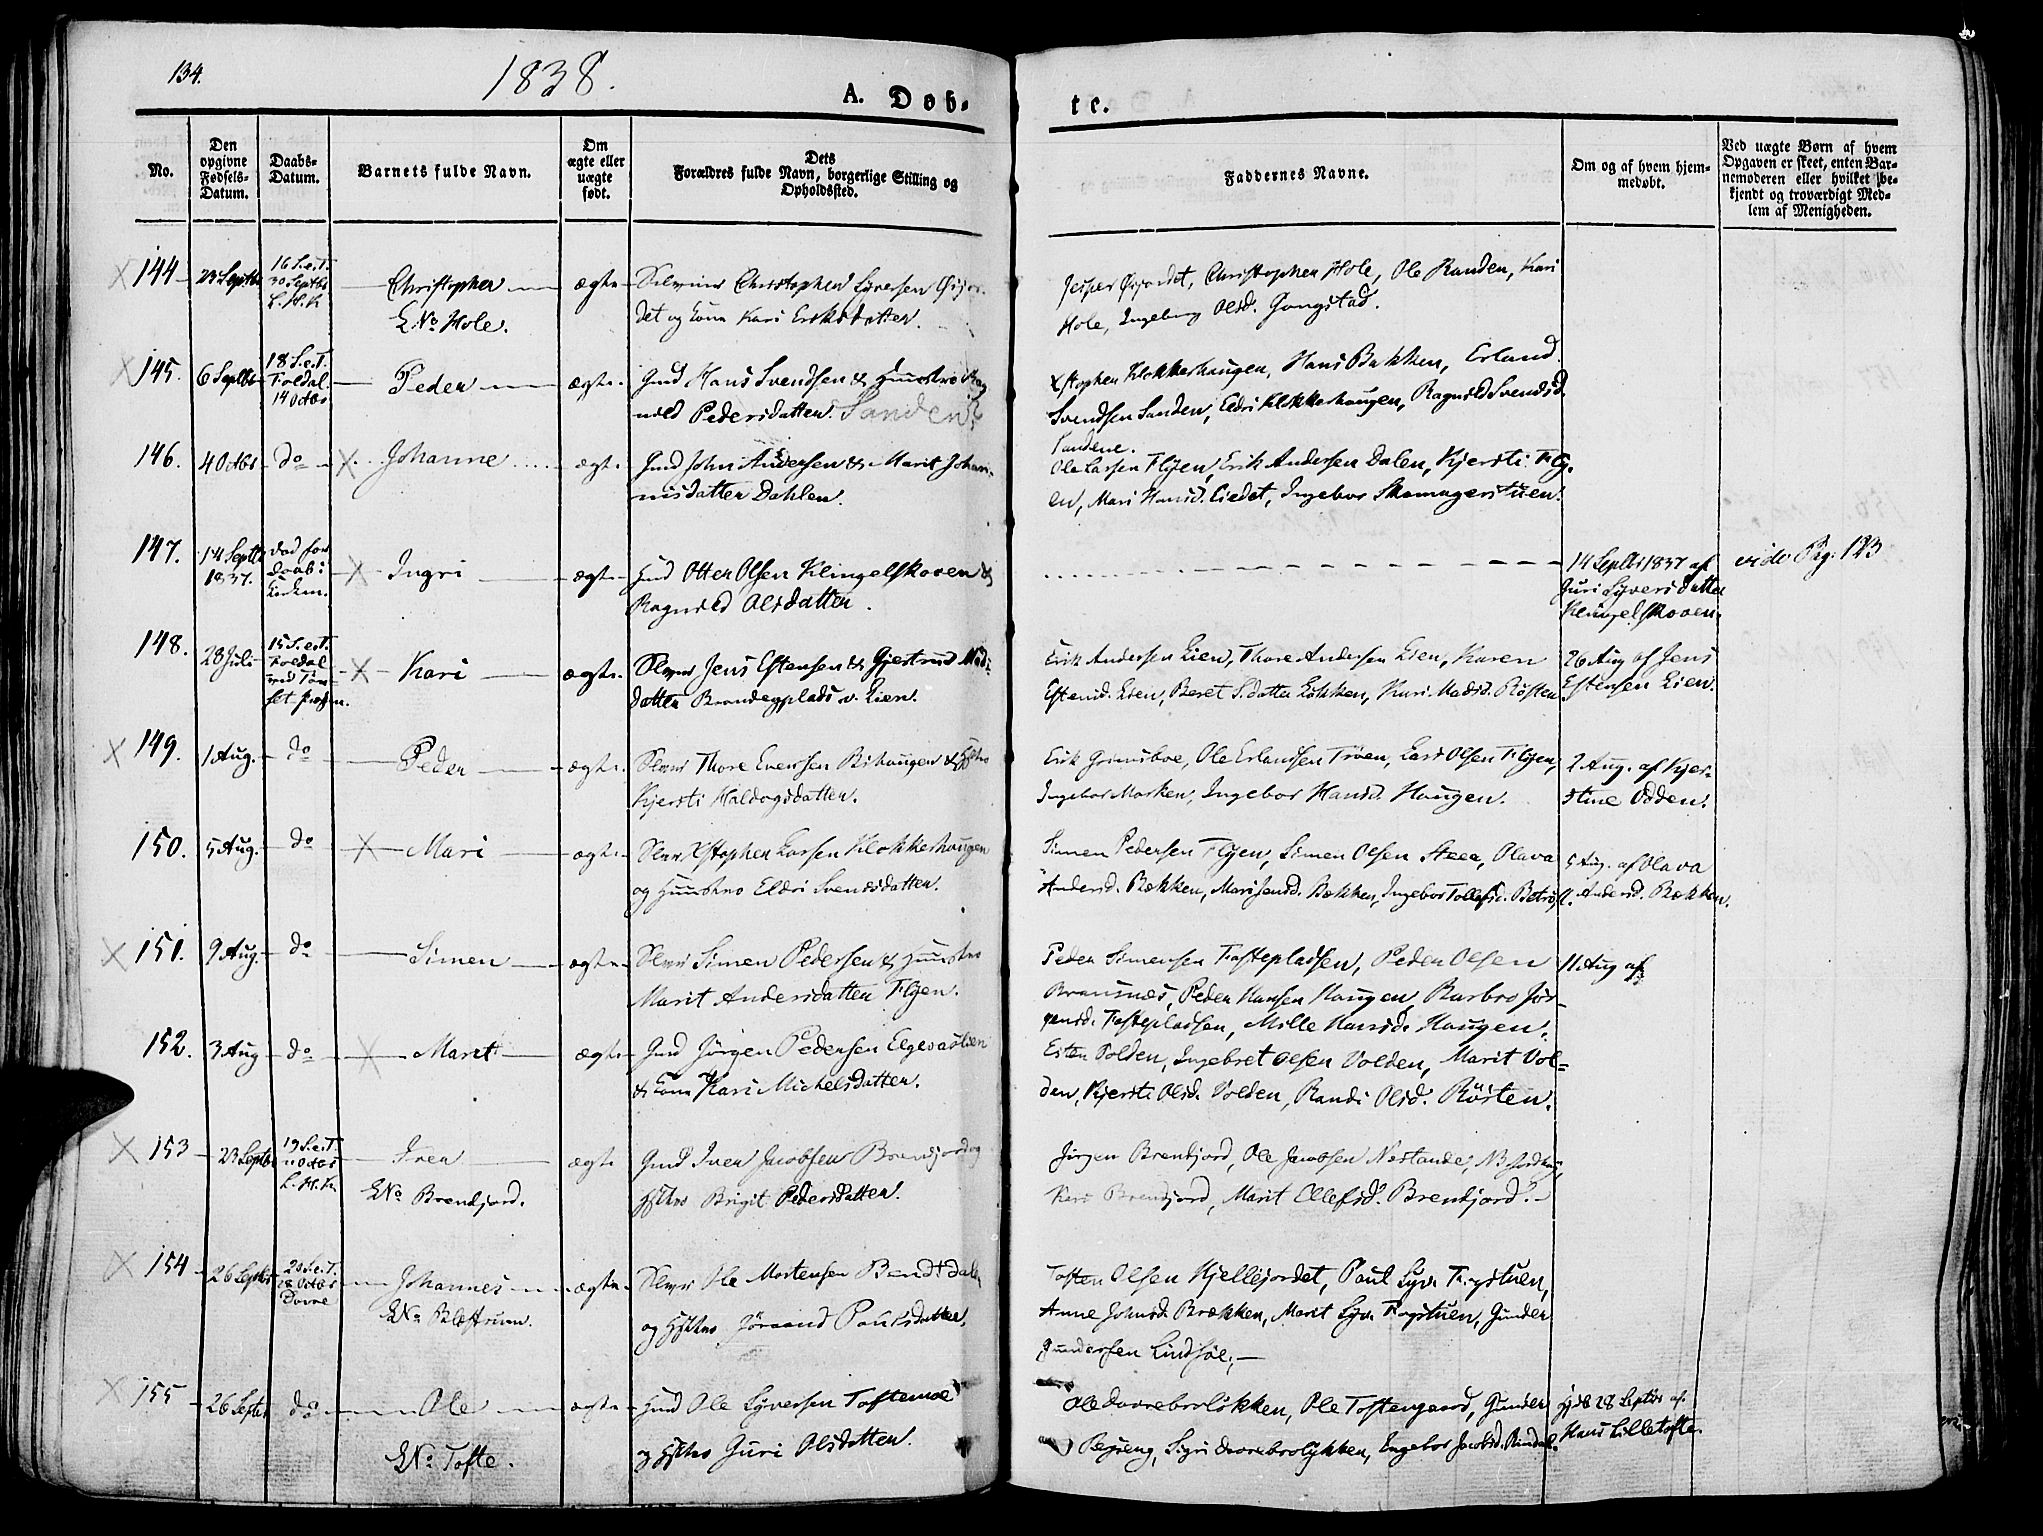 134.
1838.
A. Döb-
te.
No.
Den opgivne Fødsels-Datum.
Daabs-Datum.
Barnets fulde Navn.
Om ægte eller uægte født.
Dets Forældres fulde Navn, borgerlige Stilling og Opholdssted.
Faddernes Navne.
Om og af hvem hjem-medøbt.
Ved uægte Børn af hvem Opgaven er skeet, enten Bar-nemoderen eller hvilket be-kjendt og troværdigt Med-lem af Menigheden.
144 23 Septbr 16 S.e.T. 30 Septbr L.H.K Christopher ægte Christophen Syversen
GNo Hole. det og Kone Kari Eriksdatter.
Jesper Øijordet, Christophen Hole, Ole Randen, Kari
Hole, Ingeborg Olsd. Jongstad.
145. 6 Septbr 18 S.e.T. Foldal 14 Octbr Peder ægte Gmd Hans Svendsen & Huustro Rag
nild Pedersdatter. Sanden
Xstophen Klokkerhaugen, Hans Bakken, Erland
Svendsen Sanden, Eldri Klokkerhaugen, Ragnild Svendsd.
Sandene.
146. 4 Octbr do X Johanne ægte Gmd John Andersen & Marit Johan-
nisdatter Dahlen.
Ole Larsen Flyen, Erik Andersen Dalen, Kjersti Fly-
en, Mari Hansd. Liedet, Ingebor Skomagerstuen.
147. 14 Septbr 1837. død for daab i Kirken. X Ingri ægte Hmd Otter Olsen Klingelskoven &
Ragnild Olsdatter.
14 Septbr 1837 af
Guri Syversdatter
Klingelskoven.
vide Pag: 123
148. 28 Juli 15 S.e.T. Foldal X Kari ægte Jens Estensen & Gjertrud Mads-
datter Brandeggplads v. Lien.
Erik Andersen Lien, Thore Andersen Lien, Karen
Estensd. Lien, Beret Sdatter Løkken, Kari Madsd. Røsten
26 Aug af Jens
Estensen Lien.
149. 1 Aug. do Peder ægte Thore Evensen Rihaugen & Hstro
Kjersti Haldogsdatter.
Erik Grimsboe, Ole Erlandsen Trøen, Lars Olsen Flyen,
Ingebor Morken, Ingebor Hansd. Haugen.
2 Aug. af Kjer-
stine Odden.
150. 5 Aug. do X Mari ægte Xstophen Larsen Klokkerhaugen
og Huustro Eldri Svendsdatter.
Simen Pedersen Flyen, Simen Olsen Steen, Olava
Andersd. Bækken, Mari Jensd. Bækken, Ingebor Tollefsd.
5 Aug. af Olava
Andersd. Bækken.
151. 9 Aug. do Simen ægte Simen Pedersen & Huustro
Marit Andersdatter Flyen.
Peder Simensen Fastepladsen, Peder Olsen
Brænsnæs, Peder Hansen Haugen, Barbro Jør-
gensd. Fastepladsen, Mille Hansd. Haugen.
11 Aug af
152. 3 Aug do X Marit ægte Gmd Jörgen Pedersen Elgevaslien
& Kone Kari Michelsdatter.
Esten Volden, Ingebret Olsen Volden, Marit Vol-
den, Kjersti Olsd. Volden, Randi Olsd. Rösten.
153 23 Septbr 19 S.e.T. L.H.K. Iver ægte Gmd Iver Jacobsen Brendjord og
GNo Brendjord. Hstro Brigit Pedersdatter.
Jörgen Brendjord, Ole Jacobsen Nestande,
Kari Brendjord, Marit Ollefsd. Brendjord.
154 26 Septbr 20 S.e.T. 28 Octbr Dovre Johannes ægte Ole Mortensen
og Hstro Jöraand Paulsdatter.
Tosten Olsen Kjellejordet, Paul Syv. Fogstuen,
Anne Johnsd. Brækken, Marit Syv. Fogstuen, Gunder
Gundersen Lindsöe.
155 26 Septbr do Ole ægte Hmd Ole Syversen Toftemoe
GNo Tofte. og Hstro Guri Olsdatter.
Ole Dovrebroløkken, Ole Toftengaard, Gunder
Sigri Dovrebroløkken, Ingebor Jacobsd. Rindal.
hjdt 28 Septbr af
Hans Lilletofte.